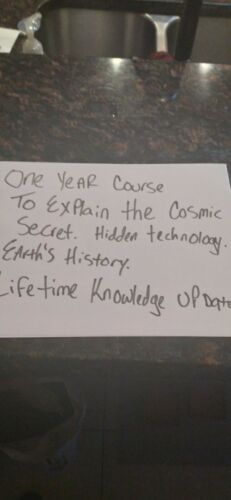 One YEAR Course
To Explain the Cosmic
Secret. Hidden technology.
EArth's History.
Lifetime Knowledge UPDate